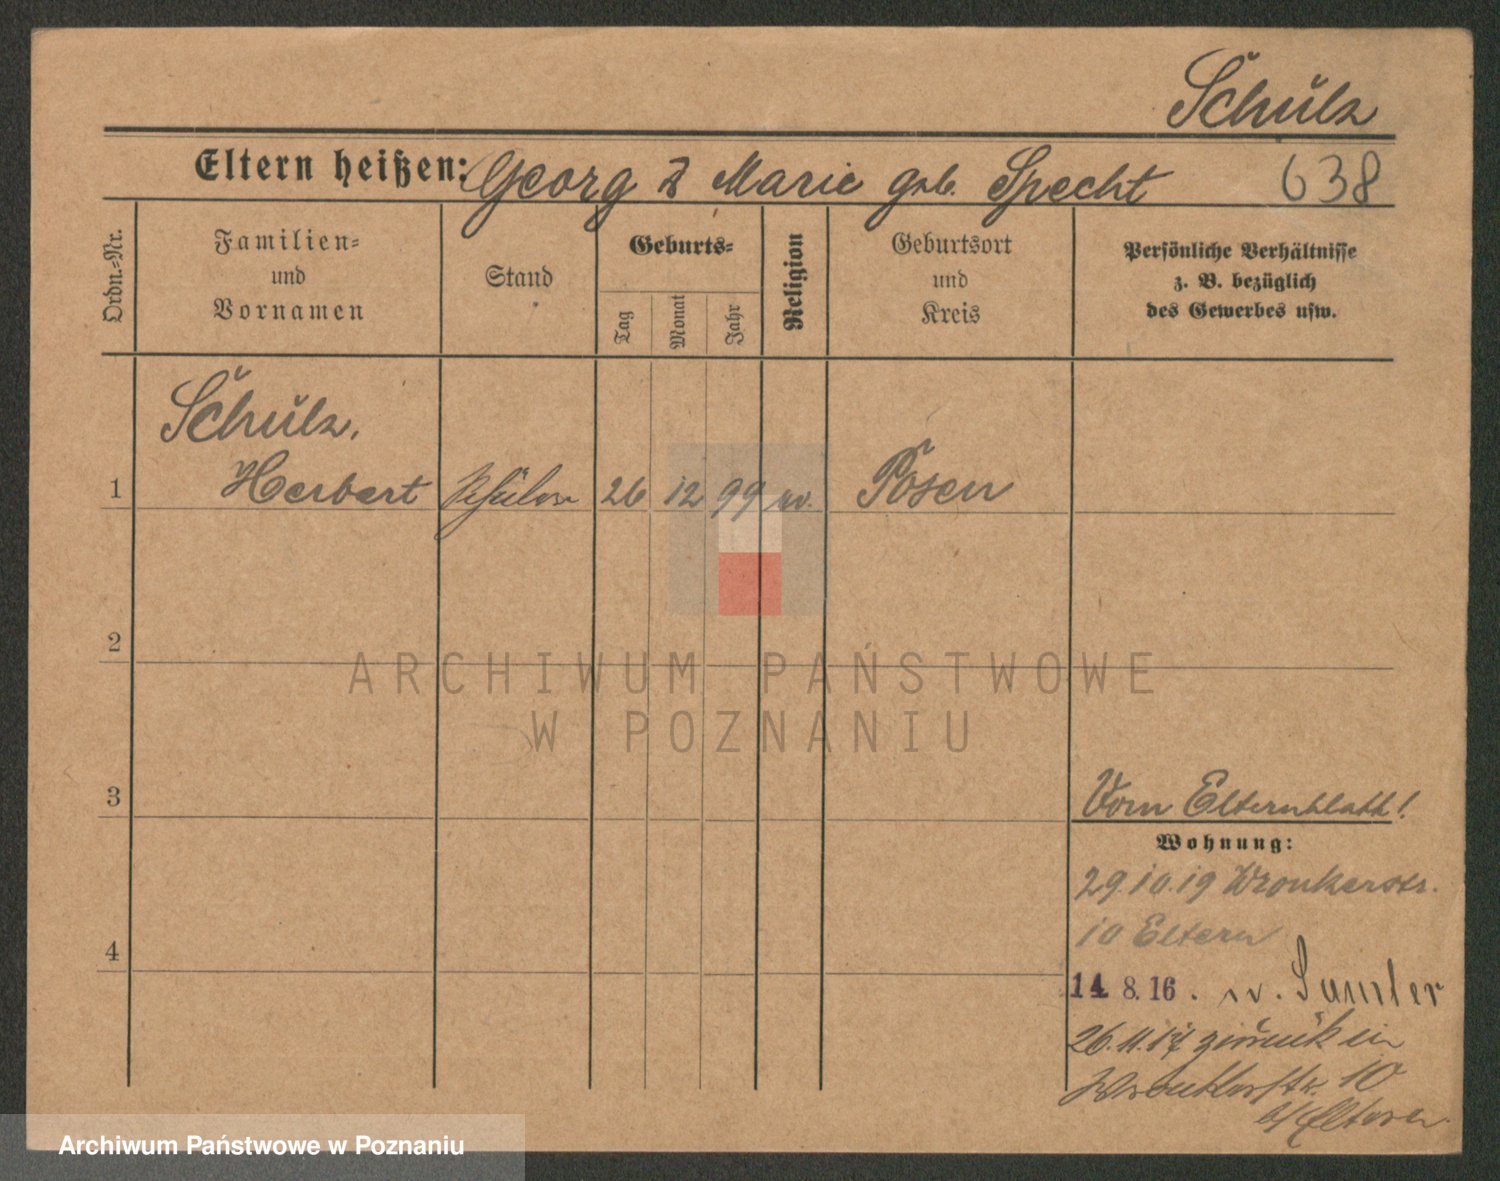 Schulz
Eltern heißen: Georg & Marie geb. Specht 638
Ordn.-Nr.
Familien-
und
Vornamen
Stand
Geburts-
Tag
Monat
Jahr
Religion
Geburtsort
und
Kreis
Persönliche Verhältnisse
z. B. bezüglich
des Gewerbes usw.
Schulz,
1 Herbert Schüler 26 12 99 ev. Posen
2
ARCHIWUM PAŃSTWOWE
W POZNANIU
3
Vom Elternblatt!
Wohnung:
29.10.19 Wronkerstr.
10 Eltern
4
14. 8. 16. n. Samter
26.11.17 zurück in
Wronkerstr. 10
b/Eltern
Archiwum Państwowe w Poznaniu